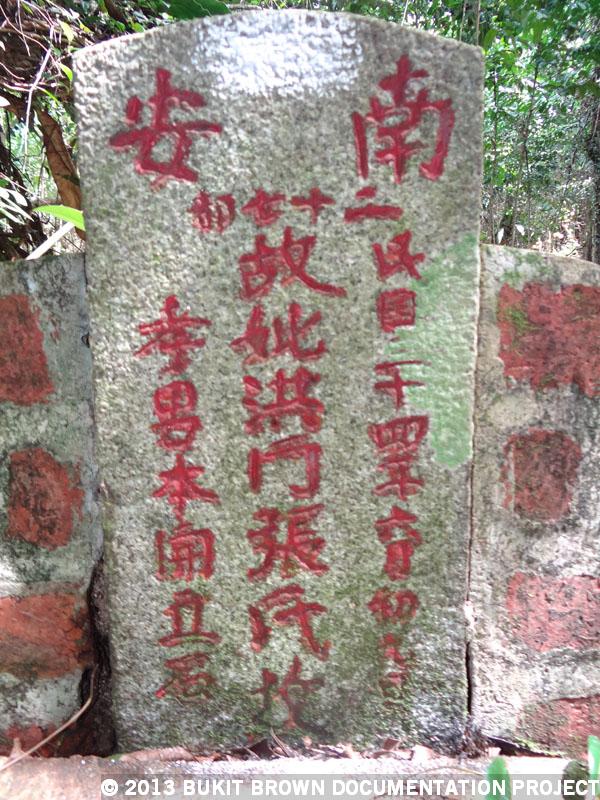 南安
二十七
民国二十四年六月初九日
故妣洪門張氏坟
孝男本開立石
© 2013 BUKIT BROWN DOCUMENTATION PROJECT